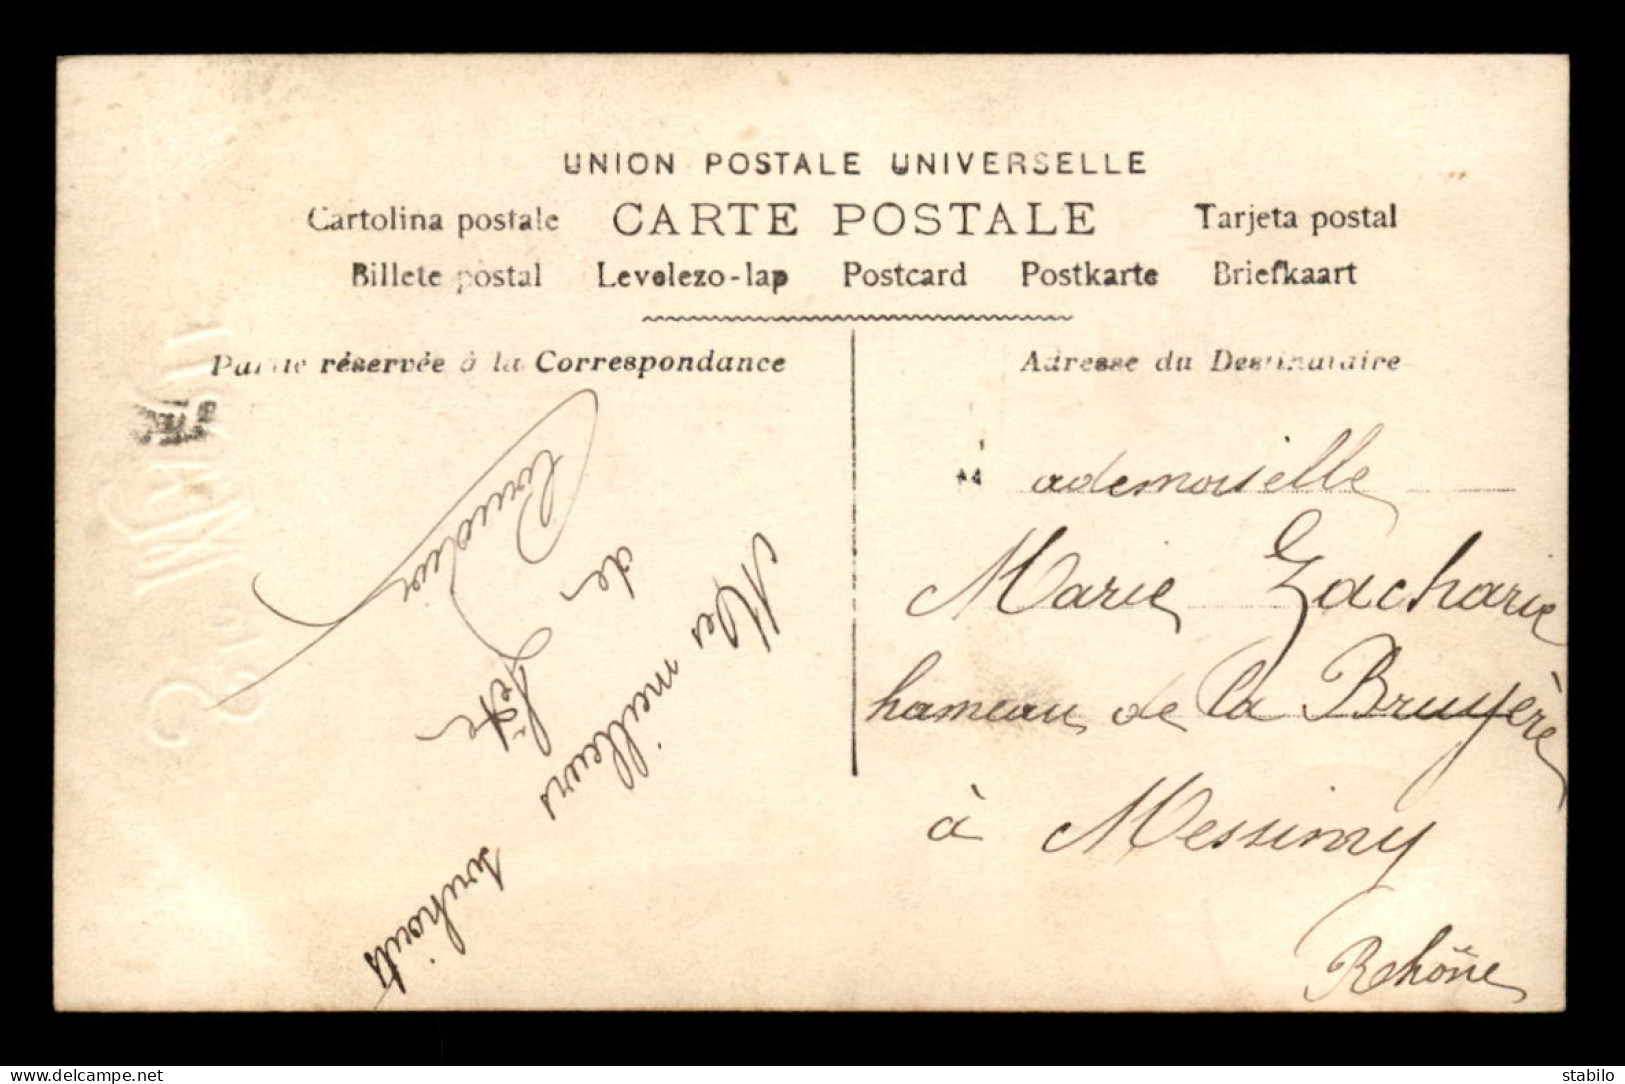 UNION POSTALE UNIVERSELLE
Cartolina postale CARTE POSTALE Tarjeta postal
Billete postal Levelezo-lap Postcard Postkarte Briefkaart
Partie réservée à la Correspondance
Adresse du Destinataire
Mes meilleurs souhaits
de fête
Mademoiselle
Marie Zacharie
hameau de la Bruyère
à Messimy
Rhône
www.delcampe.net
stabilo